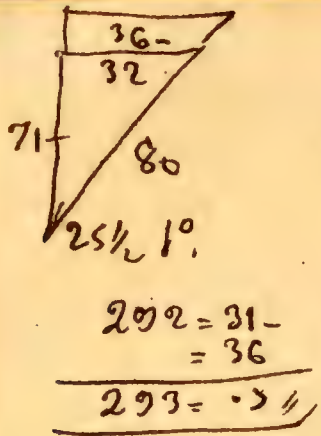 36-
32
71
80
25½ 1°.
292 = 31-
= 36
293 =